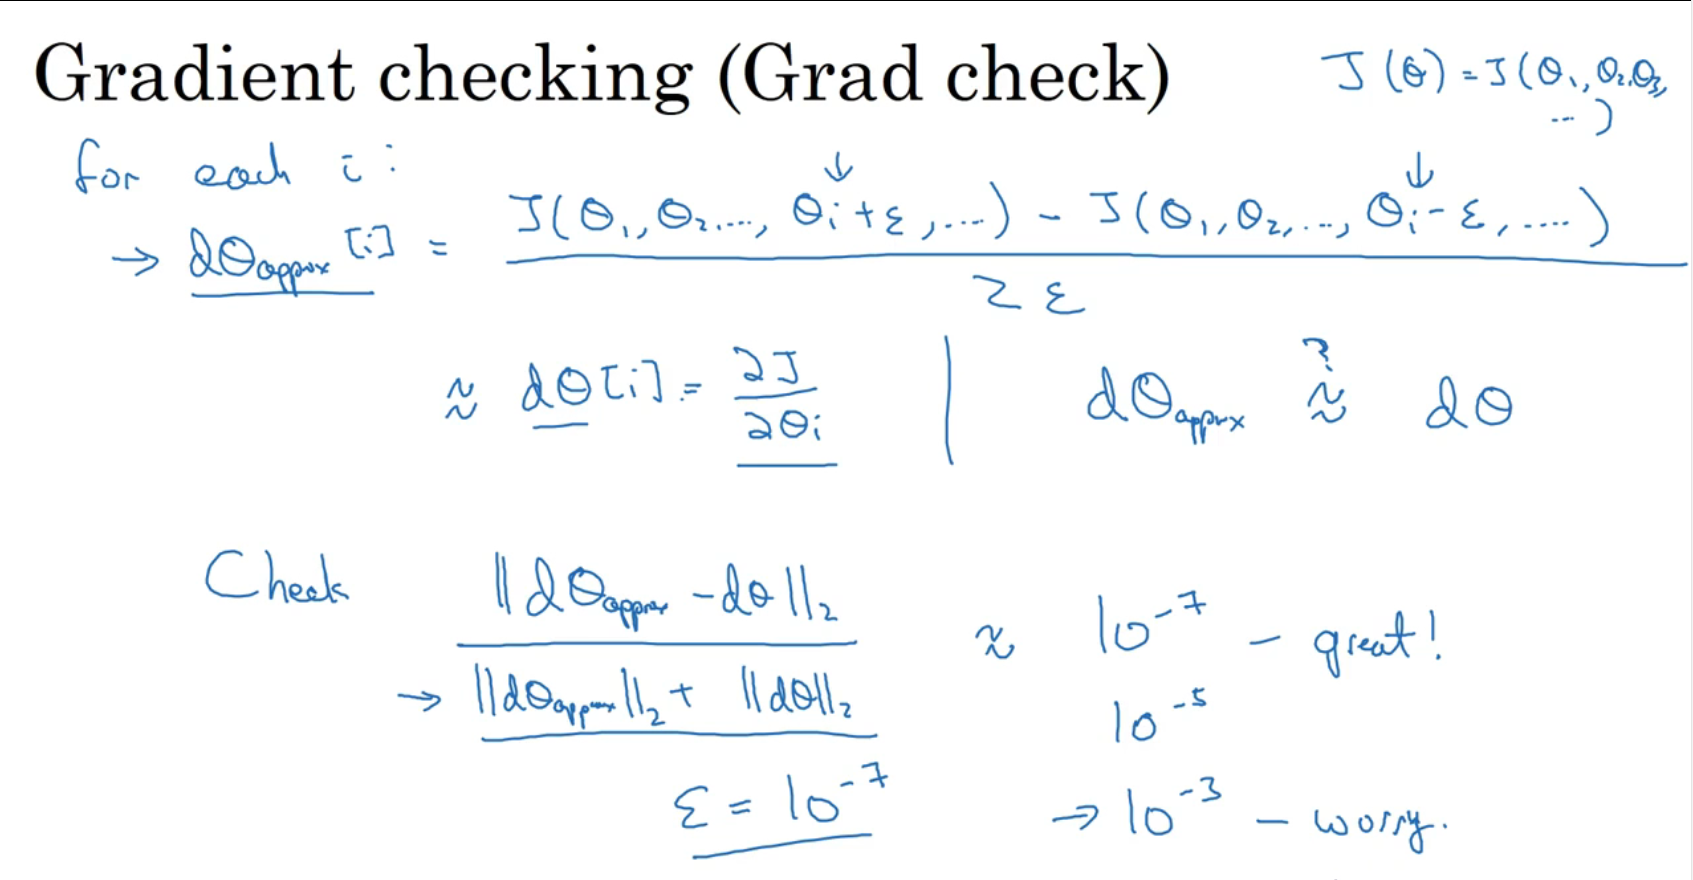 Gradient checking (Grad check)
J(θ) = J(θ₁, θ₂, θ₃,
...)
for each i:
↓ ↓
→ dθ_approx[i] = (J(θ₁, θ₂, ..., θᵢ + ε, ...) - J(θ₁, θ₂, ..., θᵢ - ε, ....)) / 2ε
≈ dθ[i] = ∂J/∂θᵢ | dθ_approx ≈? dθ
Check ||dθ_approx - dθ||₂ / (→ ||dθ_approx||₂ + ||dθ||₂) ≈ 10⁻⁷ - great!
10⁻⁵
ε = 10⁻⁷ → 10⁻³ - worry.